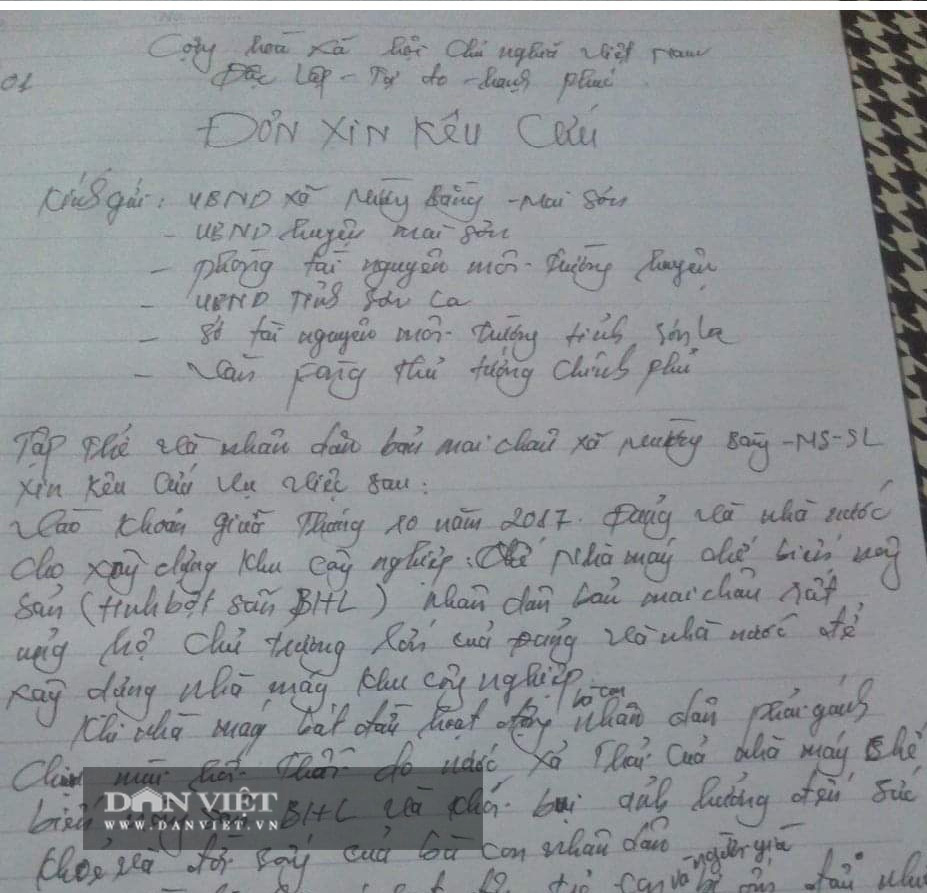 Cộng hoà xã hội chủ nghĩa việt nam
01
Độc lập - Tự do - hạnh phúc
ĐƠN XIN KÊU CỨU
Kính gửi: UBND xã Mường Bằng - Mai Sơn
- UBND huyện mai sơn
- phòng tài nguyên môi - trường huyện
- UBND Tỉnh Sơn La
- Sở tài nguyên môi - trường tỉnh Sơn la
- Văn phòng thủ tướng chính phủ
Tập thể và nhân dân bản mai châu xã Mường Bằng - MS - SL
xin kêu cứu vụ việc sau:
Vào khoản giữa Tháng 10 năm 2017. Đảng và nhà nước
cho xây dựng khu công nghiệp: Nhà máy chế biến nông
sản (tinh bột sắn BHL) nhân dân bản mai châu rất
ủng hộ chủ trương lớn của Đảng và nhà nước để
xây dựng nhà máy khu công nghiệp.
Khi nhà máy bắt đầu hoạt động bà con nhân dân phải gánh
chịu mùi hôi thối do nước xả thải của nhà máy chế
biến nông sản BHL và khói bụi ảnh hưởng đến sức
khoẻ và đời sống của bà con nhân dân
người già
DÂN VIỆT
WWW.DANVIET.VN